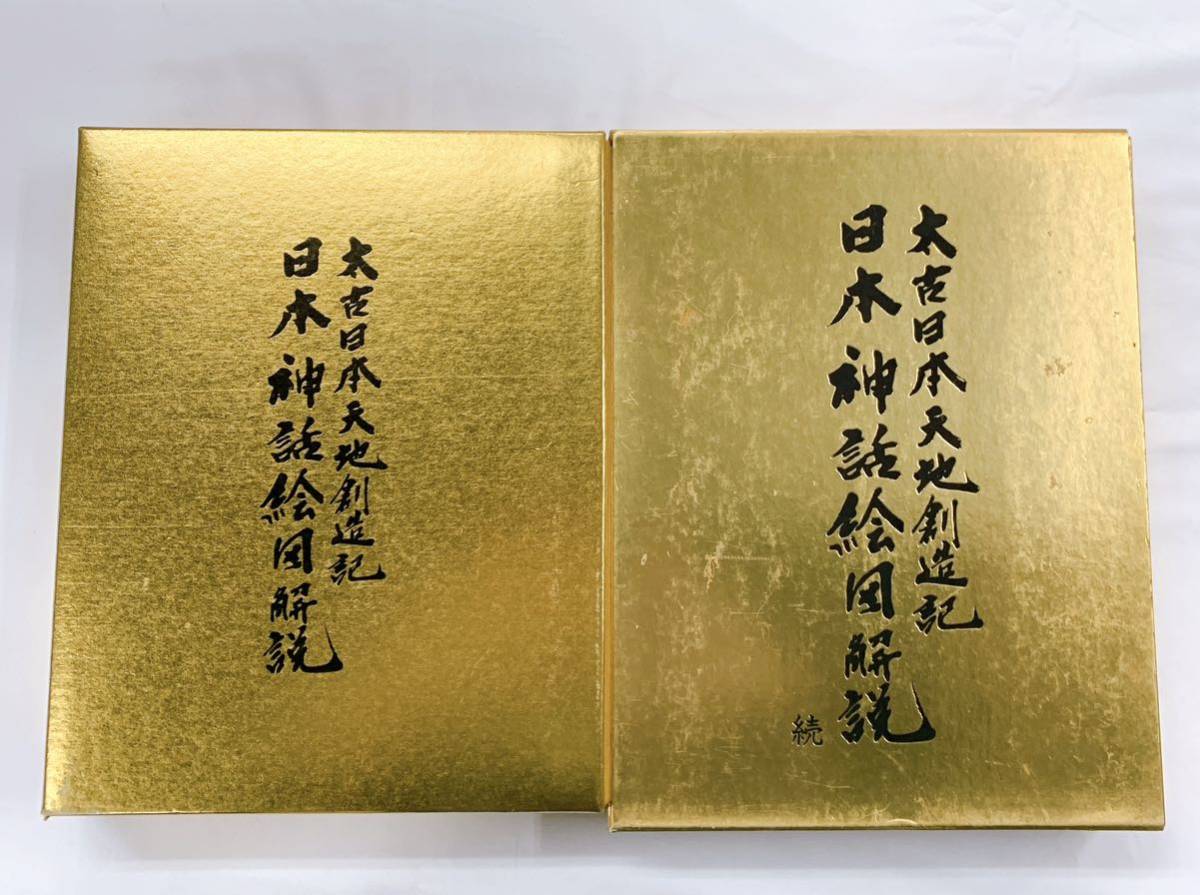 太古日本天地創造記
日本神話絵図解説
太古日本天地創造記
日本神話絵図解説
続